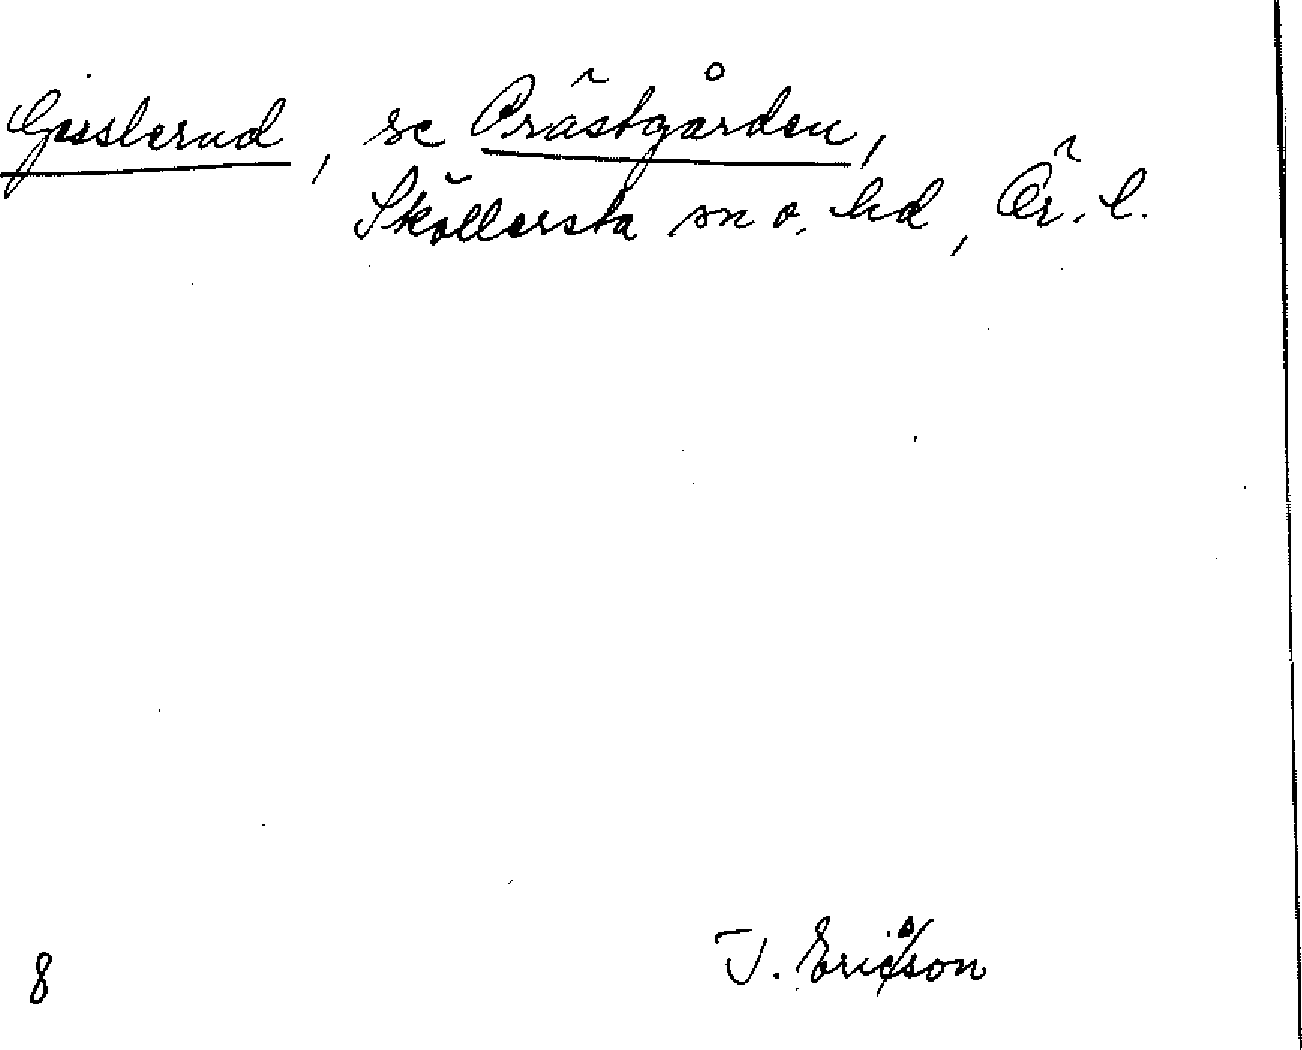 Gisslerud, se Prästgården,
Sköllersta sn o. hd, Ör. l.
J. Ericsson
8